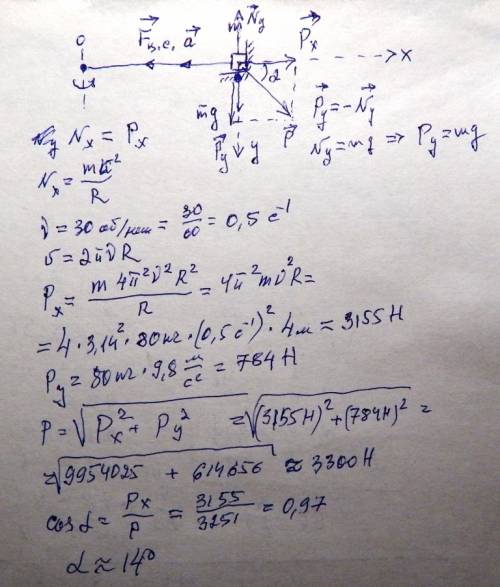 O F⃗ц.с. a⃗ N⃗y P⃗x
α x
m⃗g P⃗y y P⃗ P⃗y = -N⃗y
Ny = mg => Py = mg
Nx = Px
Nx = mv²/R
ν = 30 об/мин = 30/60 = 0,5 c⁻¹
v = 2πνR
Px = m 4π²ν²R²/R = 4π²mν²R =
= 4 · 3,14² · 80кг · (0,5 c⁻¹)² · 4м ≈ 3155 Н
Py = 80кг · 9,8 м/c² = 784 Н
P = √(Px² + Py²) = √((3155Н)² + (784Н)²) =
= √(9954025 + 614656) ≈ 3300 Н
cos α = Px/P = 3155/3251 = 0,97
α ≈ 14°